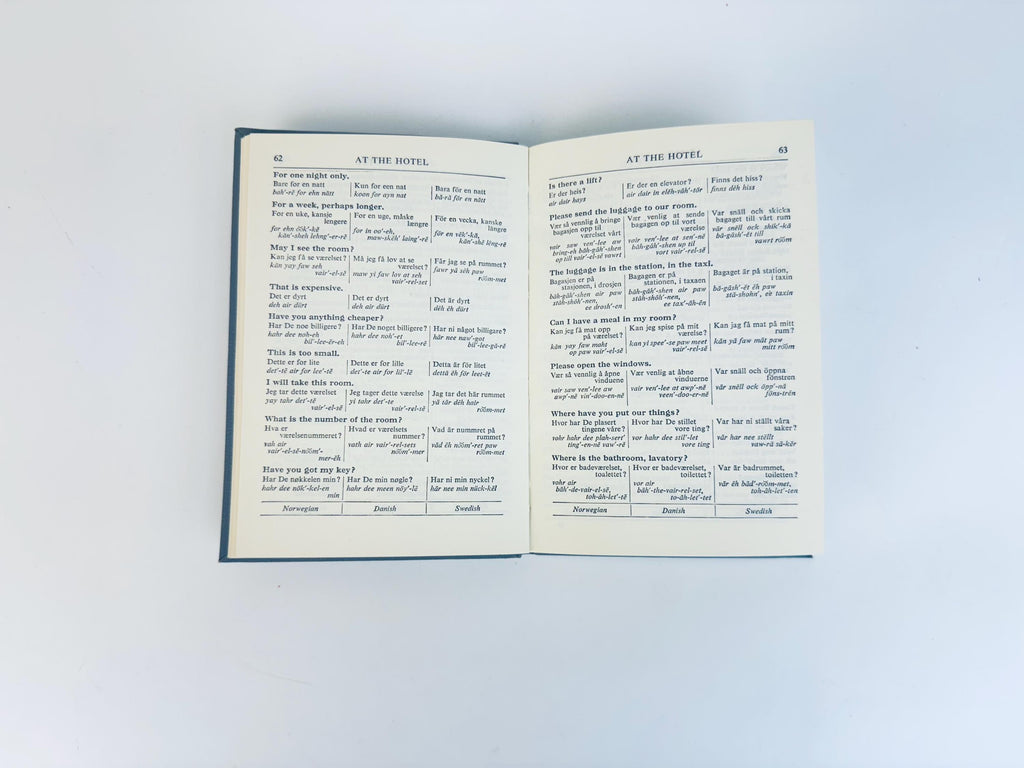 62
AT THE HOTEL
For one night only.
Bare for en natt
bah'-rĕ for ehn nătt
Kun for een nat
koon for ayn nat
Bara för en natt
bā-rā för en nătt
For a week, perhaps longer.
For en uke, kansje
lengere
for ehn öök'-kĕ
kăn'-sheh lehng'-er-rĕ
For en uge, måske
længre
for in oo'-eh,
maw-skéh' laing'-rĕ
För en vecka, kanske
längre
för en vĕk'-kă,
kăn'-shĕ lĕng-rĕ
May I see the room?
Kan jeg få se værelset?
kăn yay faw seh
vair'-el-sĕ
Må jeg få lov at se
værelset?
maw yi faw lov at seh
vair'-rel-set
Får jag se på rummet?
fawr yă seh paw
rööm-met
That is expensive.
Det er dyrt
deh air dürt
Det er dyrt
deh air dürt
Det är dyrt
dĕh ĕh dürt
Have you anything cheaper?
Har De noe billigere?
kahr dee noh-eh
bil'-lee-ĕr-eh
Har De noget billigere?
kahr dee noh'-et
bil'-lee-er-eh
Har ni något billigare?
hăr nee naw'-got
bil'-lee-gă-rĕ
This is too small.
Dette er for lite
det'-tĕ air for lee'-tĕ
Dette er for lille
det'-te air for lil'-lĕ
Detta är för litet
dettă ĕh för leet-ĕt
I will take this room.
Jeg tar dette værelset
yay tahr det'-tĕ
vair'-el-sĕ
Jeg tager dette værelse
yi tahr det'-te
vair'-rel-sĕ
Jag tar det här rummet
yă tăr dĕh hăir
rööm-met
What is the number of the room?
Hva er
værelsenummeret?
vah air
vair'-el-sĕ-nööm'-
mer-ĕh
Hvad er værelsets
nummer?
vath air vair'-rel-sets
nööm'-mer
Vad är nummret på
rummet?
văd ĕh nööm'-ret paw
rööm-met
Have you got my key?
Har De nøkkelen min?
kahr dee nök'-kel-en
min
Har De min nøgle?
kahr dee meen nöy'-lĕ
Har ni min nyckel?
hăr nee min nück-kĕl
Norwegian
Danish
Swedish
AT THE HOTEL
63
Is there a lift?
Er der heis?
air dair hays
Er der en elevator?
air dair in eléh-răh'-tŏr
Finns det hiss?
finns dĕh hiss
Please send the luggage to our room.
Vær så vennlig å bringe
bagasjen opp til
værelset vårt
vair saw ven'-lee aw
bring-eh băh-găh'-shen
op til vair'-el-sĕ vawrt
Vær venlig at sende
bagagen op til vort
værelse
vair ven'-lee at sen'-nĕ
băh-găh'-shen up til
vort vair'-rel-sĕ
Var snäll och skicka
bagaget till vårt rum
văr snĕll ock shik'-kă
bă-găsh'-ĕt till
vawrt rööm
The luggage is in the station, in the taxi.
Bagasjen er på
stasjonen, i drosjen
băh-găh'-shen air paw
stăh-shöh'-nen,
ee drosh'-en
Bagagen er på
stationen, i taxaen
băh-găh'-shen air paw
stăh-shöh'-nen,
ee tax'-ăh-ĕn
Bagaget är på station,
i taxin
bă-găsh'-ĕt ĕh paw
stă-shohn', ee taxin
Can I have a meal in my room?
Kan jeg få mat opp
på værelset?
kăn yay faw maht
op paw vair'-el-sĕ
Kan jeg spise på mit
værelse?
kan yi spee'-se paw meet
vair'-rel-sĕ
Kan jag få mat på mitt
rum?
kăn yă faw măt paw
mitt rööm
Please open the windows.
Vær så vennlig å åpne
vinduene
vair saw ven'-lee aw
awp'-nĕ vin'-doo-en-nĕ
Vær venlig at åbne
vinduerne
vair ven'-lee at awp'-nĕ
veen'-doo-er-nĕ
Var snäll och öppna
fönstren
văr snĕll ock öpp'-nă
föns-tren
Where have you put our things?
Hvor har De plasert
tingene våre?
vohr hahr dee plah-sert'
ting'-en-nĕ vaw'-rĕ
Hvor har De stillet
vore ting?
vor hahr dee stil'-let
vore ting
Var har ni ställt våra
saker?
văr hăr nee stĕllt
vaw-ră să-kĕr
Where is the bathroom, lavatory?
Hvor er badeværelset,
toalettet?
vohr air
băh'-de-vair-el-sĕ,
toh-ăh-let'-tĕ
Hvor er badeværelset,
toilettet?
vor air
băh'-the-vair-rel-set,
to-ăh-let'-tet
Var är badrummet,
toiletten?
văr ĕh băd'-rööm-met,
toh-ăh-let'-ten
Norwegian
Danish
Swedish